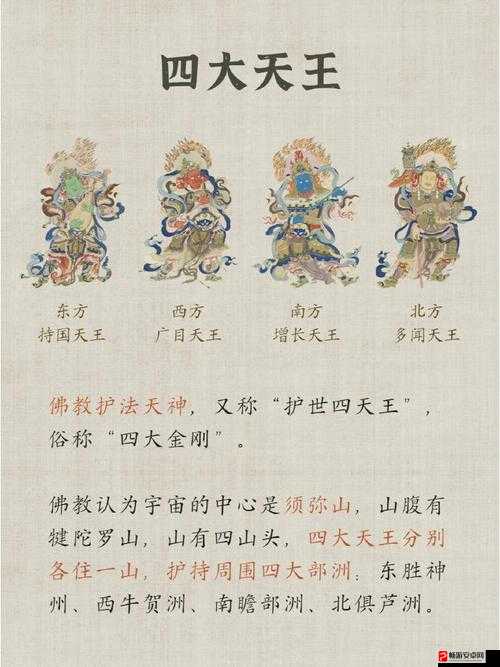 四大天王
东方 西方 南方 北方
持国天王 广目天王 增长天王 多闻天王
佛教护法天神，又称“护世四天王”，
俗称“四大金刚”。
佛教认为宇宙的中心是须弥山，山腹有
犍陀罗山，山有四山头，四大天王分别
各住一山，护持周围四大部洲：东胜神
州、西牛贺洲、南瞻部洲、北俱芦洲。
畅游安卓网